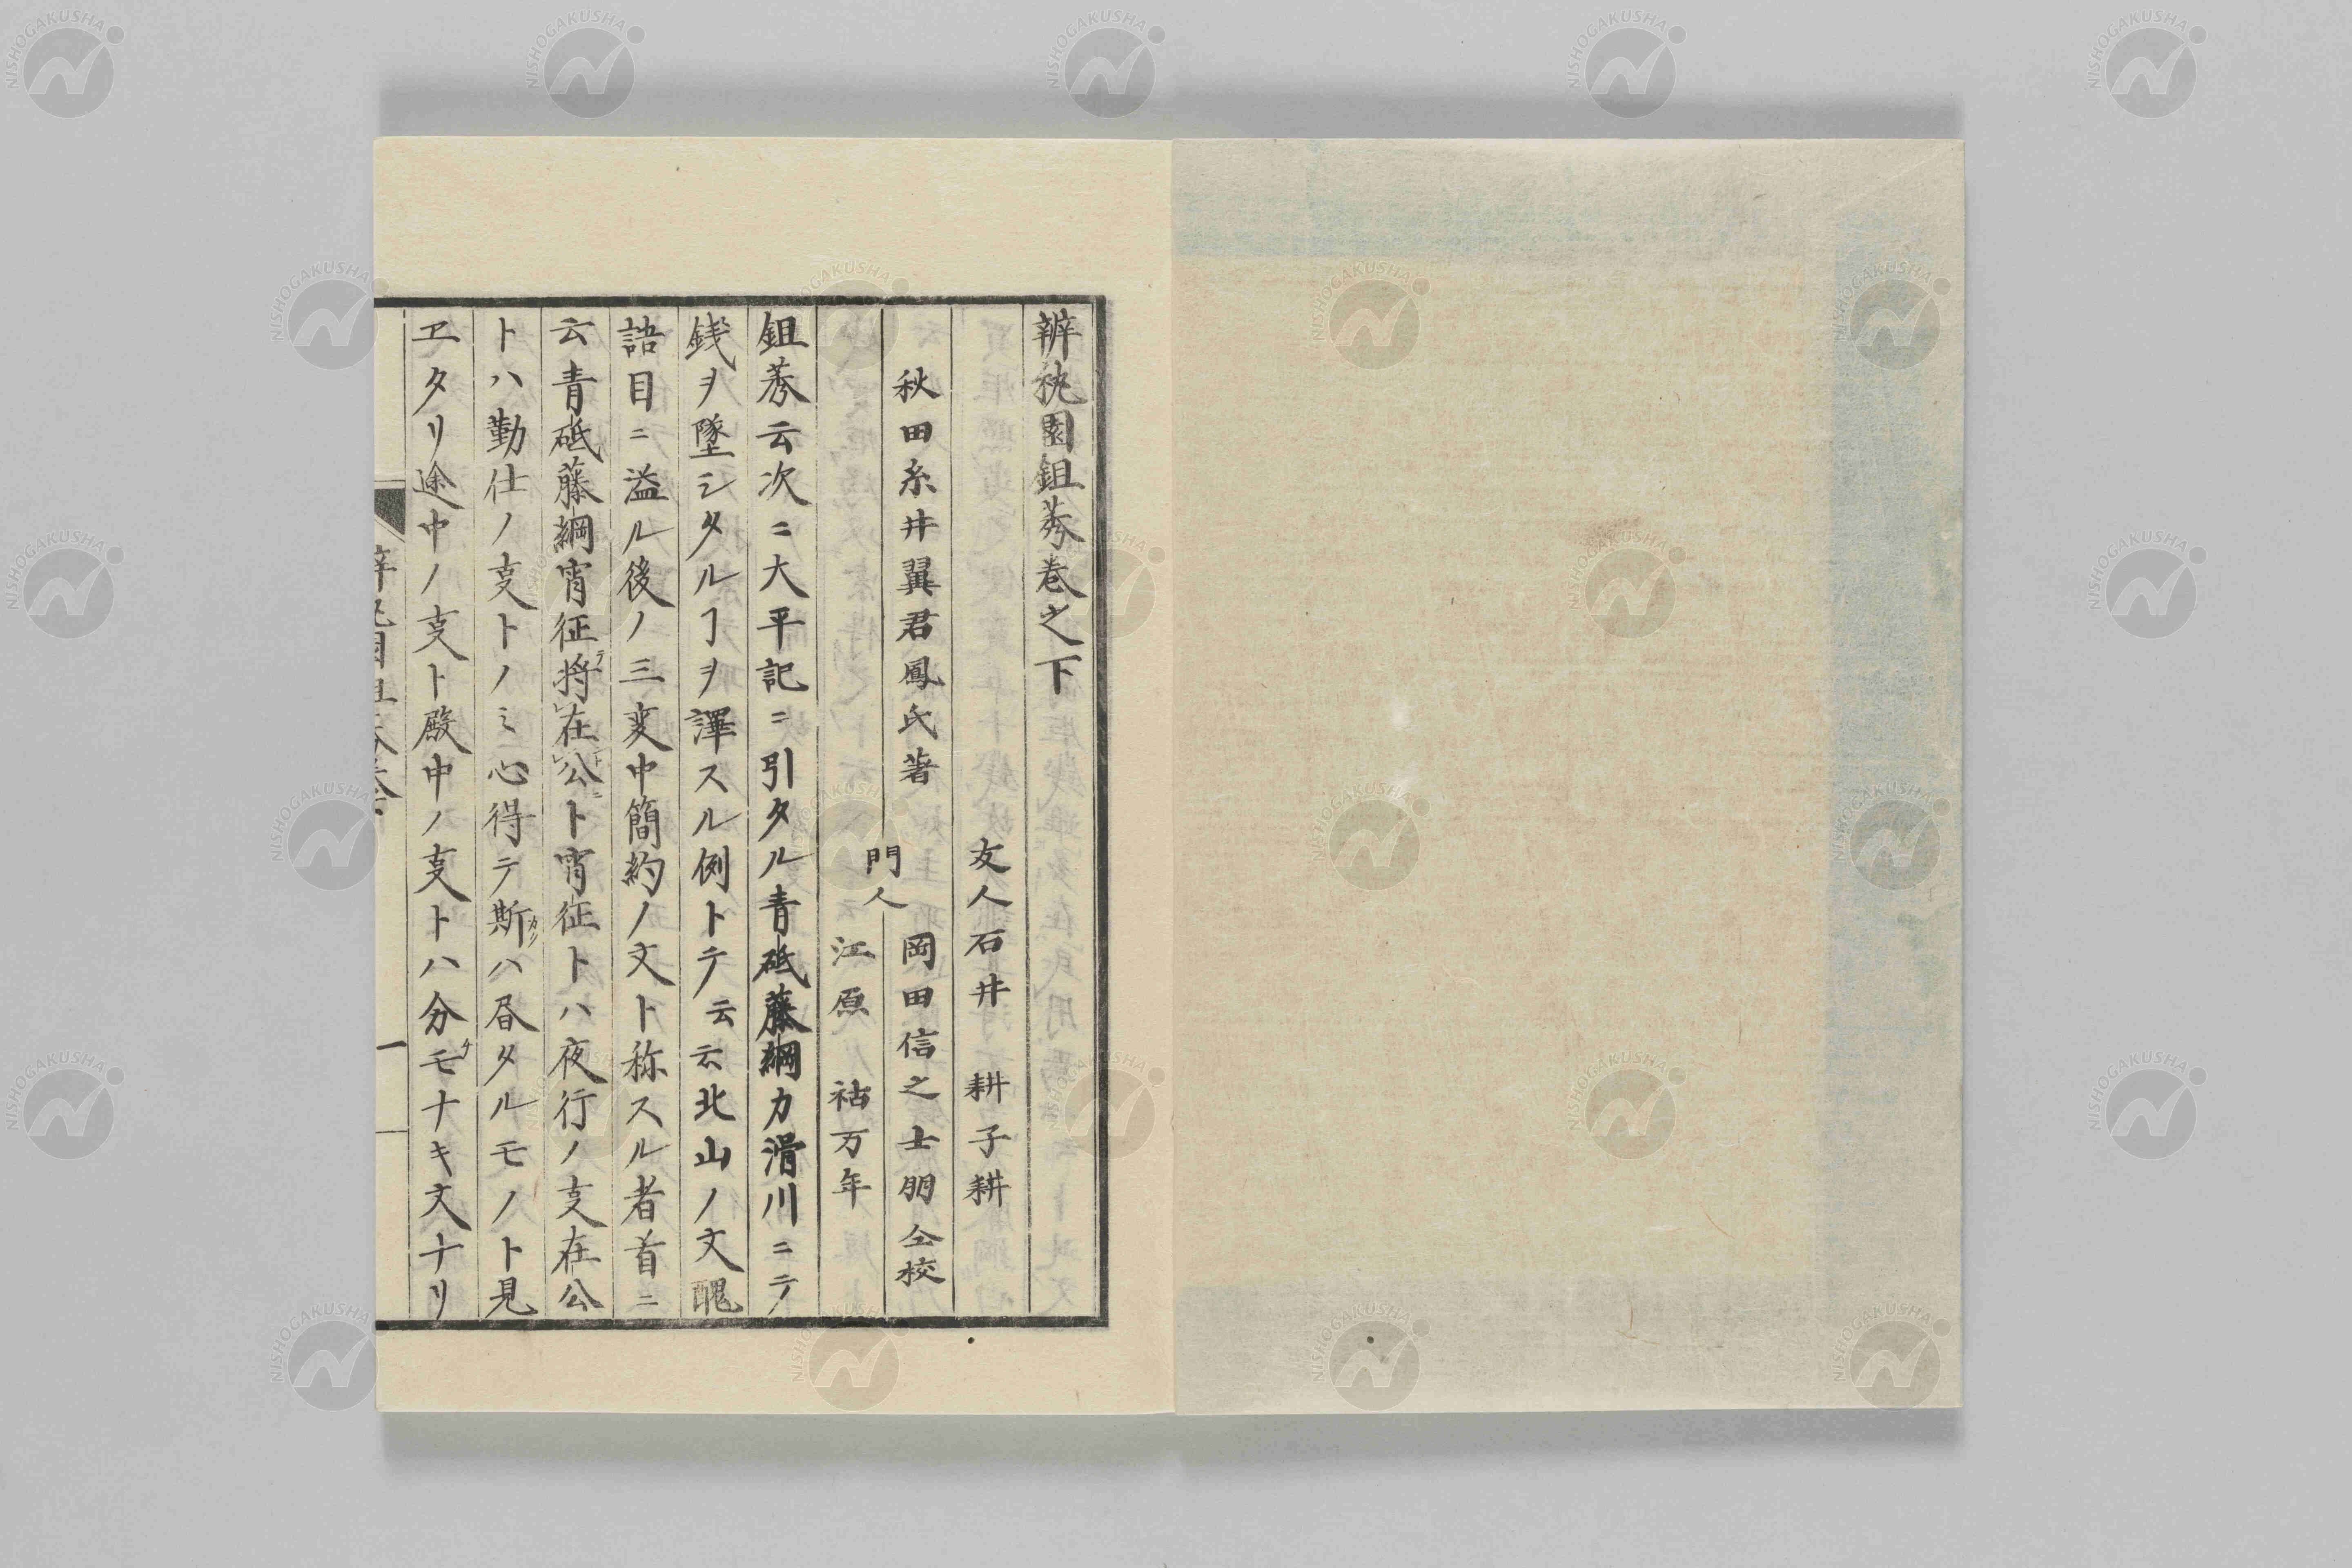 辨䄂園鉏莠巻之下
友人石井 耕子耕
秋田糸井翼君鳳氏著
門人
岡田信之士朋仝校
江原 祜万年
鉏莠云次ニ大平記ニ引タル青砥藤綱カ滑川ニテ
銭ヲ墜シタルヿヲ譯スル例トテ云云北山ノ文醜
語目ニ溢ル後ノ三変中簡約ノ文ト称スル者首ニ
云青砥藤綱宵征将在公ト宵征トハ夜行ノ叓在公
トハ勤仕ノ叓トノミ心得テ斯ハ昏タルモノト見
ヱタリ途中ノ叓ト殿中ノ叓トハ分モナキ文ナリ
一
NISHOGAKUSHA